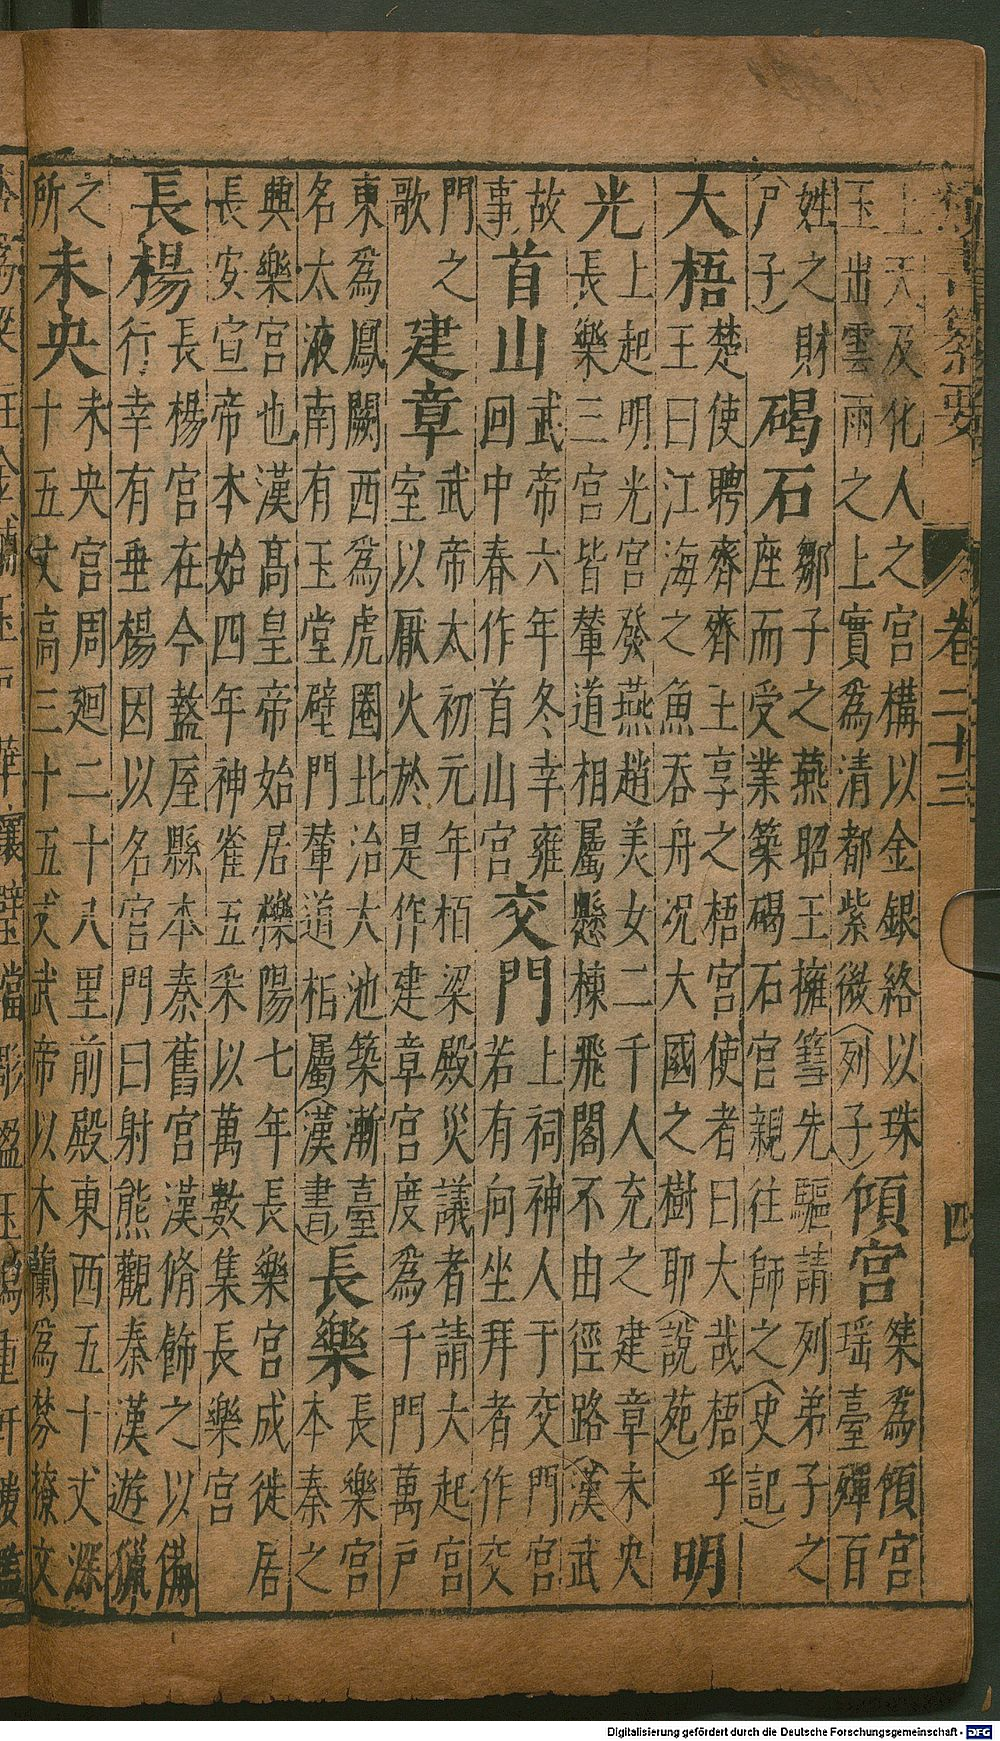 卷二十三
四
上天及化人之宮構以金銀絡以珠
玉出雲雨之上實爲清都紫微(列子)
傾宮
桀爲傾宮
瑶臺殫百
姓之財
尸子)
碣石
鄒子之燕昭王擁篲先驅請列弟子之
座而受業築碣石宮親往師之(史記)
大梧
楚使聘齊齊王享之梧宮使者曰大哉梧乎
王曰江海之魚吞舟况大國之樹耶(說苑)
明
光
上起明光宮發燕趙美女二千人充之建章未央
長樂三宮皆輦道相屬懸棟飛閣不由徑路(漢武
故
事)
首山
武帝六年冬幸雍
回中春作首山宮
交門
上祠神人于交門宮
若有向坐拜者作交
門之
歌
建章
武帝太初元年栢梁殿災議者請大起宮
室以厭火於是作建章宮度爲千門萬戶
東爲鳳闕西爲虎圈北治大池築漸臺
名太液南有玉堂壁門輦道栢屬(漢書)
長樂
長樂宮
本秦之
興樂宮也漢髙皇帝始居櫟陽七年長樂宮成徙居
長安宣帝本始四年神雀五采以萬數集長樂宮
長楊
長楊宮在今盩厔縣本秦舊宮漢脩飾之以備
行幸有垂楊因以名宮門曰射熊觀秦漢遊獵
之
所
未央
未央宮周廻二十八里前殿東西五十丈深
十五丈高三十五丈武帝以木蘭爲棼橑文
Digitalisierung gefördert durch die Deutsche Forschungsgemeinschaft - DFG